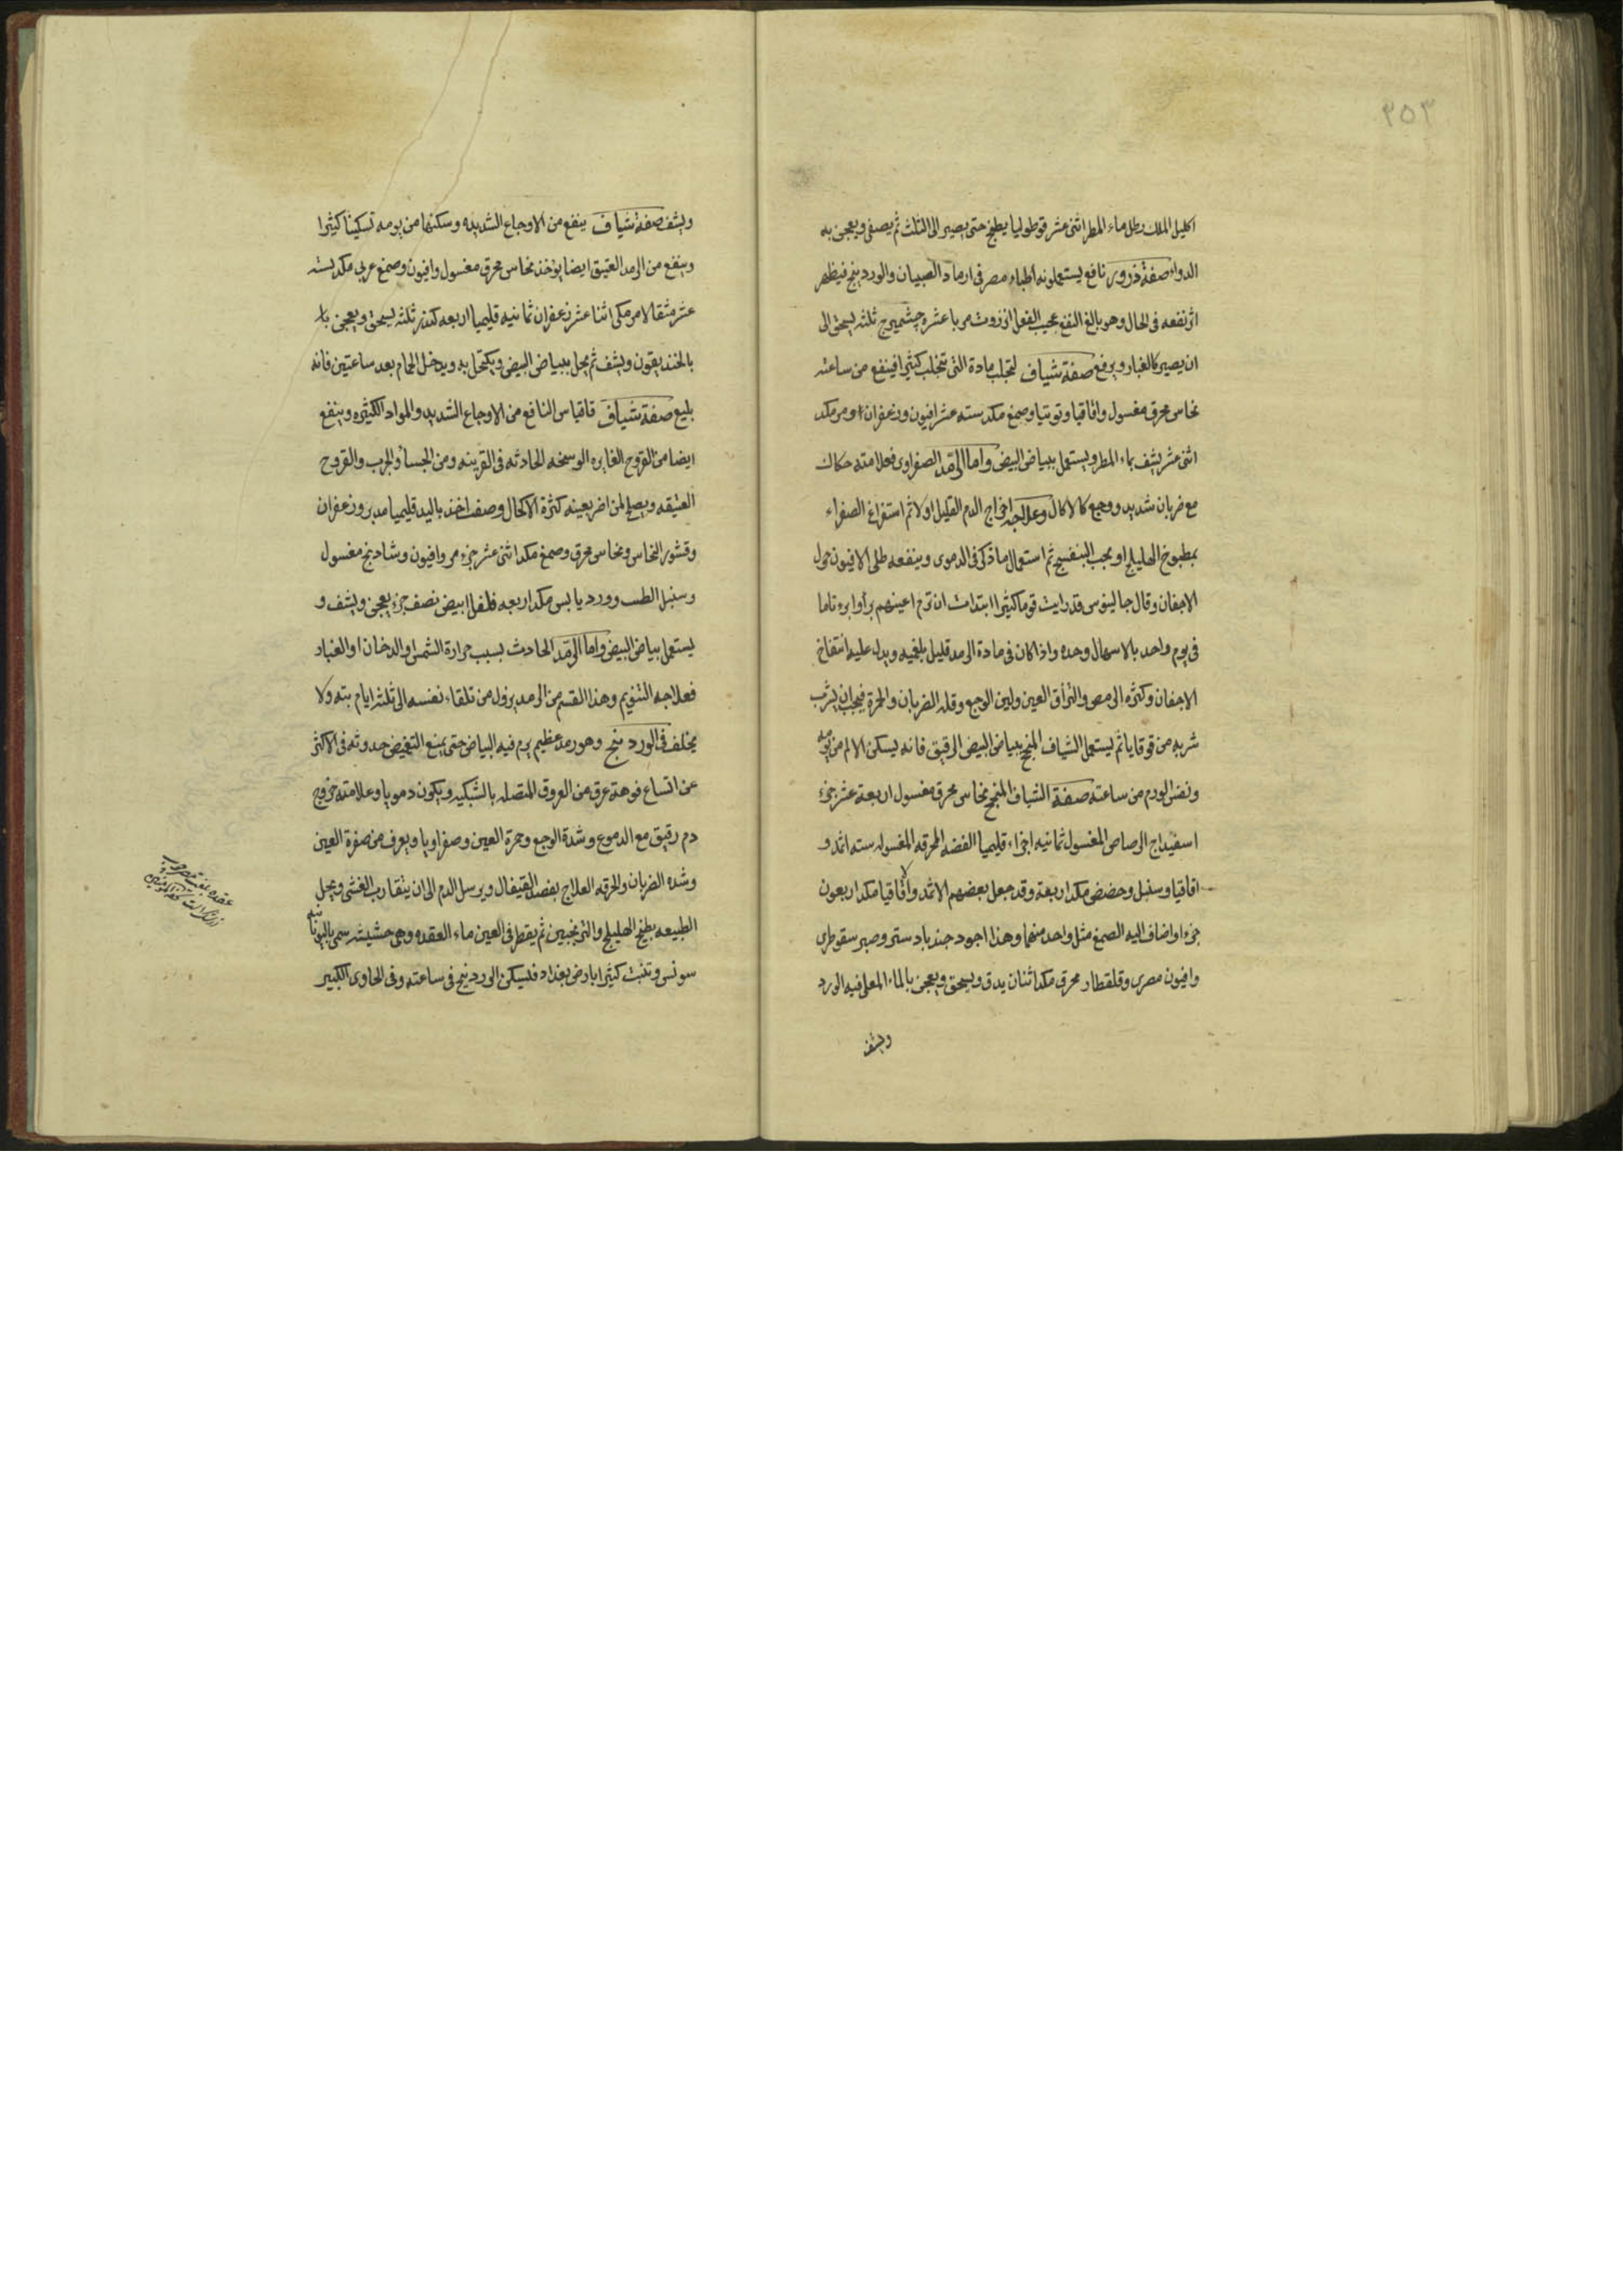 ٣٥٣
اكليل الملك رطل ماء المطر اثنى عشر قوطوليا يطبخ حتى يصير الى الثلث ثم يصفى ويعجن به
الدواء صفة ذرور نافع يستعملونه اطباء مصر فى ارماد الصبيان والوردينج فيظهر
اثر نفعه فى الحال وهو بالغ النفع عجيب الفعل انزروت مربا عشرة چشميزج ثلثه يسحق الى
ان يصير كالغبار ويرفع صفة شياف لتحلب مادة التى تتحلب كثيرا فينفع من ساعته
نحاس محرق مغسول واقاقيا وتوتيا وصمغ مكد سته عشر افيون وزعفران ومر مكد
اثنى عشر يشف بماء المطر ويستعمل ببياض البيض واما الرمد الصفراوى فعلامته حكاك
مع ضربان شديد ووجع كالاكال وعلاجه اخراج الدم القليل اولا ثم استفراغ الصفراء
بمطبوخ الهليلج او بحب البنفسج ثم استعمال ما ذكر فى الدموى وينفعه طلى الافيون حول
الاجفان وقال جالينوس قد رايت قوما كثيرا ابتدات ان ترم اعينهم برأوا برء تاما
فى يوم واحد بالاسهال وحده واذا كان فى مادة الرمد قليل بلغميه ويدل عليه انتفاخ
الاجفان وكثرة الرمص والتزاق العين ولين الوجع وقلة الضربان والحمرة فيجب ان يشرب
شربه من قوقايا ثم يستعمل الشياف المنجح ببياض البيض الرقيق فانه يسكن الالم من يومه
ونفش الورم من ساعته صفة الشياف المنجح نحاس محرق مغسول اربعة عشر جزء
اسفيداج الرصاص المغسول ثمانيه اجزاء قليميا الفضه المحرقه المغسوله سته اثمد و
اقاقيا وسنبل وحضض مكد اربعة وقد جعل بعضهم الاثمد والاقاقيا مكد اربعون
جزءا واضاف اليه الصمغ مثل واحد منهما وهذا اجود جندبادستر وصبر سقوطرى
وافيون مصرى وقلقطار محرق مكد اثنان يدق ويسحق ويعجن بالماء المغلى فيه الورد
ويشف
ويشف صفة شياف ينفع من الاوجاع الشديده وسكنها من يومه تسكينا كثيرا
وينفع من الرمد العتيق ايضا يؤخذ نحاس محرق مغسول وافيون وصمغ عربى مكد سته
عشر مثقالا مر مكى اثنا عشر زعفران ثمانيه قليميا اربعه كندر ثلثه يسحق ويعجن
بالخنديقون ويشف ثم يحل ببياض البيض ويكتحل به ويدخل الحمام بعد ساعتين فانه
بليغ صفة شياف قاقياس النافع من الاوجاع الشديد والمواد الكثيره وينفع
ايضا من القروح الغايره الوسخه الحادثه فى القرنيه ومن الجسأ والجرب والقروح
العتيقه ويصلح لمن اضر بعينه كثرة الاكحال وصفة اخذ باليد قليميا مدبر وزعفران
وقشور النحاس ونحاس محرق وصمغ مكد اثنى عشر جزء مر وافيون وشادنج مغسول
وسنبل الطيب وورد يابس مكد اربعه فلفل ابيض نصف جزء يعجن ويشف و
يستعمل ببياض البيض واما الرمد الحادث بسبب حرارة الشمس والدخان او الغبار
فعلاجه التنويم وهذا القسم من الرمد يزول من تلقاء نفسه الى ثلثه ايام بته ولا
يختلف فى الوردينج وهو رمد عظيم يرم فيه البياض حتى يمنع التغميض حدوثه فى الاكثر
عن اتساع فوهة عرق من العروق المتصله بالشبكيه ويكون دمويا وعلامته خروج
دم رقيق مع الدموع وشدة الوجع وحمرة العين وصفراويا ويعرف من صفرة العين
وشده الضربان والحرقه العلاج بفصد القيفال ويرسل الدم الى ان يتقارب الغشى ويحل
الطبيعه بطبخ الهليلج والترنجبين ثم يقطر فى العين ماء العقده وهى حشيشه سمى باليونانيه
سونس وتنبت كثيرا بارض بغداد فليسكن الوردينج فى ساعته وفى الحاوى الكبير